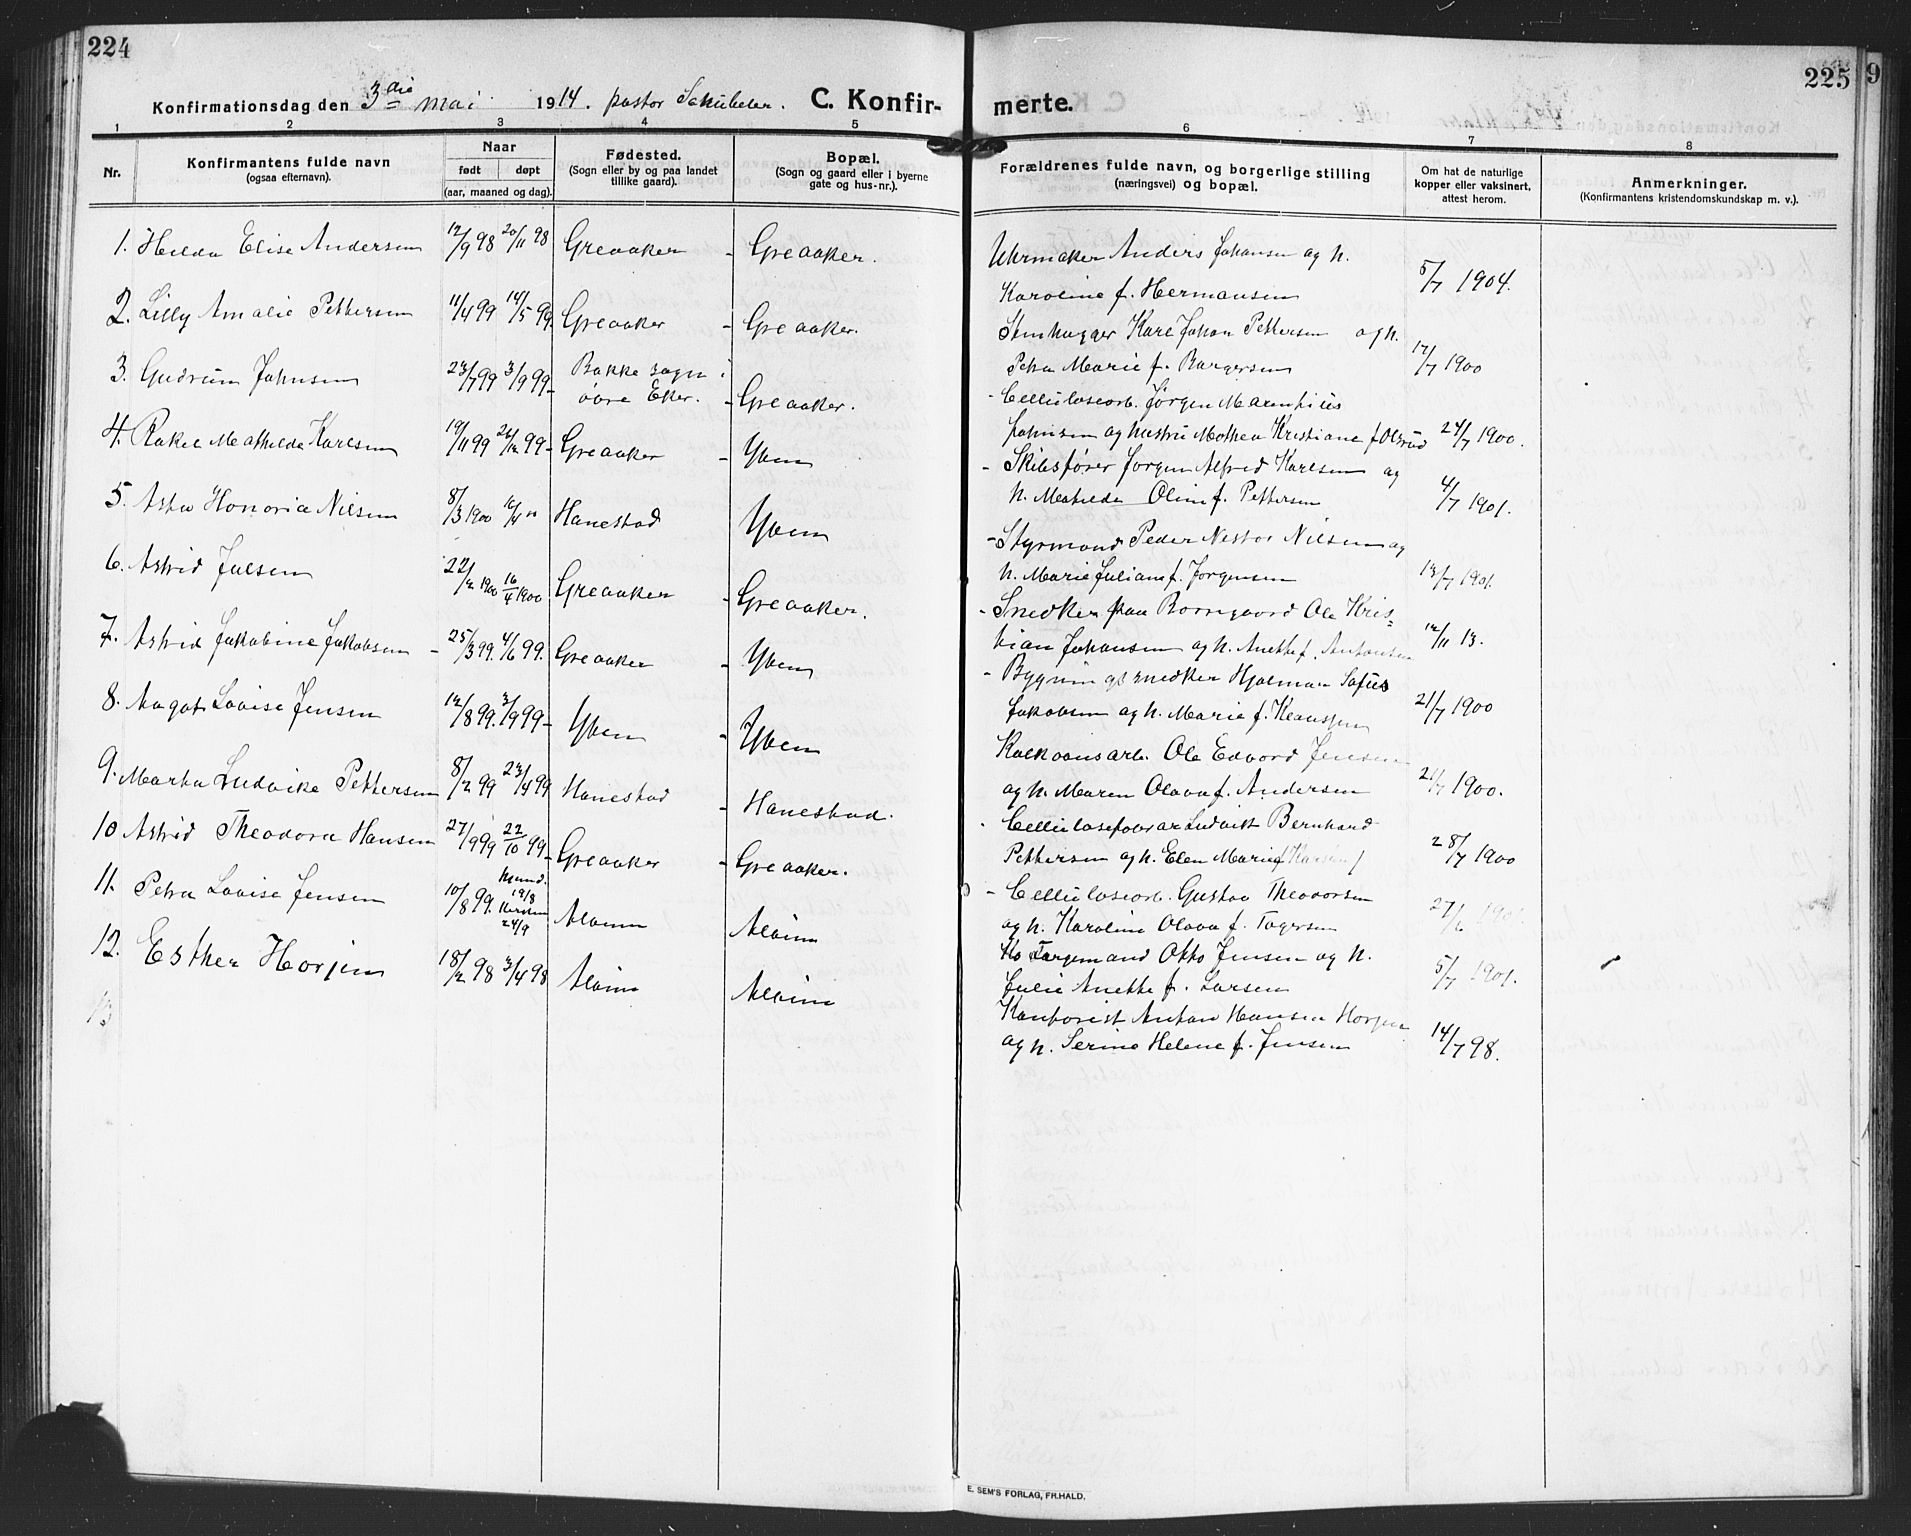 224
Konfirmationsdag den 3die mai 1914. pastor C. Konfir-
1 2 3 4 5
Nr. Konfirmantens fulde navn (ogsaa efternavn). Naar født døpt (aar, maaned og dag). Fødested. (Sogn eller by og paa landet tillike gaard). Bopæl. (Sogn og gaard eller i byerne gate og hus-nr.).
1. Hilda Elise Andersen 12/9 98 20/11 98 Greaaker - Greaaker.
2. Lilly Amalie Pettersen 11/4 99 14/5 99. Greaaker - Greaaker.
3. Gudrun Johnsen 23/7 99 3/9 99- Bakke sogn i
øvre Eker. - Greaaker.
4. Rakel Mathilde Karlsen 19/11 99 26/12 99- Greaaker - Yven
5. Asta Honoria Nilsen 8/3 1900 16/4 " Hanestad Yven
6. Astrid Julsen 22/2 1900 16/4 1900 Greaaker - Greaaker.
7. Astrid Jakobine Jakobsen - 25/3 99. 4/6 99. Greaaker - Yven
8. Aagot Lovise Jensen 12/8 99. 3/9 99- Yven - Yven
9. Marta Ludvike Pettersen 8/2 99 23/4 99 Hanestad - Hanestad.
10 Astrid Theodora Hansen 27/9 99 22/10 99- Greaaker - Greaaker.
11. Petra Lovise Jensen 10/8 99. 19/8 24/9 Alvim Alvim
12. Esther Horjen 18/2 98 3/4 98 Alvim Alvim
13
225
9
merte.
6 7 8
Forældrenes fulde navn, og borgerlige stilling (næringsvei) og bopæl. Om hat de naturlige kopper eller vaksinert, attest herom. Anmerkninger. (Konfirmantens kristendomskundskap m. v.).
Uhrmaker Anders Johansen og h.
Karoline f. Hermansen 5/7 1904.
Stenhugger Karl Johan Pettersen og h.
Petra Marie f. Borgersen 17/7 1900
- Celluloseorb. Jørgen Marentius
Johnsen og hustru Mathea Kristiane f Olsrud 24/7 1900.
- Skibsfører Jørgen Alfred Karlsen og
h. Matilde Oline f. Pettersen 4/7 1901.
- Styrmand Peder Nestor Nilsen og
h. Marie Juliane f. Jørgensen 13/7 1901.
- Snedker paa Borregaard Ole Kris-
tian Johansen og h. Anette f. Antonsen 12/11 13.
- Bygnings snedker Hjalmar Sofus
Jakobsen og h. Marie f. Klaussen 21/7 1900
Kalkovnsarb. Ole Edvard Jensen
og h. Maren Olava f. Andersen 21/7 1900.
- Ludvikt Bernhard
Pettersen og h. Elen Marie f. Hansen 28/7 1900
- Celluloseorb. Gustav Theodorsen
og h. Karoline Olava f. Togersen 27/6 1901
Otto Jensen og h.
Julie Anette f. Larsen 5/7 1901.
Kontorist Anton Hansen Horjen
og h. Serine Helene f. Jensen 14/7 98.
E. SEM'S FORLAG, FR.HALD.